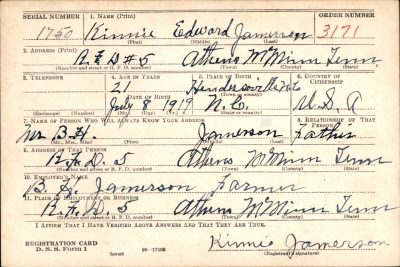 SERIAL NUMBER 1. NAME (Print) ORDER NUMBER
1750 Kinnie Edward Jamerson 3171
(First) (Middle) (Last)
2. ADDRESS (Print)
R F D #5 Athens McMinn Tenn
(Number and street or R. F. D. number) (Town) (County) (State)
3. TELEPHONE 4. AGE IN YEARS 5. PLACE OF BIRTH 6. COUNTRY OF CITIZENSHIP
21 Hendersonville
DATE OF BIRTH (Town or county)
July 8 1919 N. C. U. S. A
(Mo.) (Day) (Yr.) (State or country)
7. NAME OF PERSON WHO WILL ALWAYS KNOW YOUR ADDRESS 8. RELATIONSHIP OF THAT PERSON
Mr B. H. Jamerson Father
(Mr., Mrs., Miss) (First) (Middle) (Last)
9. ADDRESS OF THAT PERSON
R. F. D. 5 Athens McMinn Tenn
(Number and street or R. F. D. number) (Town) (County) (State)
10. EMPLOYER'S NAME
B. H. Jamerson Farmer
11. PLACE OF EMPLOYMENT OR BUSINESS
R. F. D. 5 Athens McMinn Tenn
(Number and street or R. F. D. number) (Town) (County) (State)
I AFFIRM THAT I HAVE VERIFIED ABOVE ANSWERS AND THAT THEY ARE TRUE.
REGISTRATION CARD Kinnie Jamerson
D. S. S. Form 1 (over) (Registrant's signature)